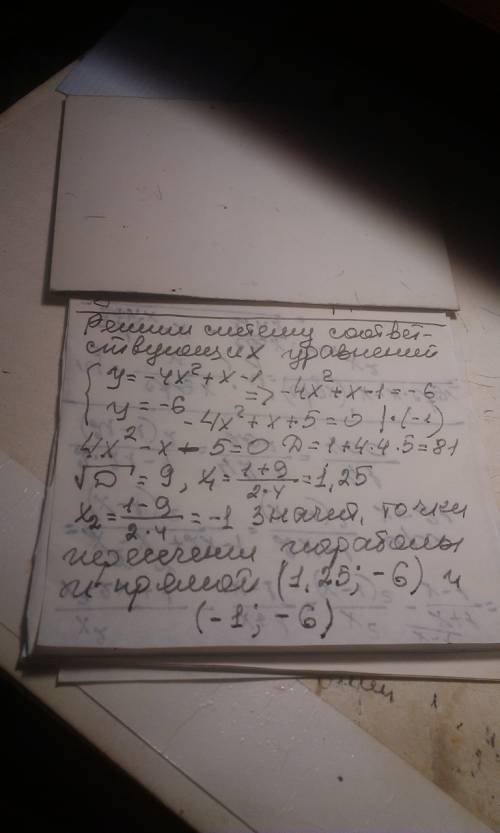 Решим систему соответ-
ствующих уравнений
{ y = -4x² + x - 1 => -4x² + x - 1 = -6
y = -6 -4x² + x + 5 = 0 | · (-1)
4x² - x - 5 = 0 D = 1 + 4·4·5 = 81
√D = 9, x₁ = (1+9)/(2·4) = 1,25
x₂ = (1-9)/(2·4) = -1 Значит, точки
пересечен параболы
и прямой (1,25; -6) и
(-1; -6)